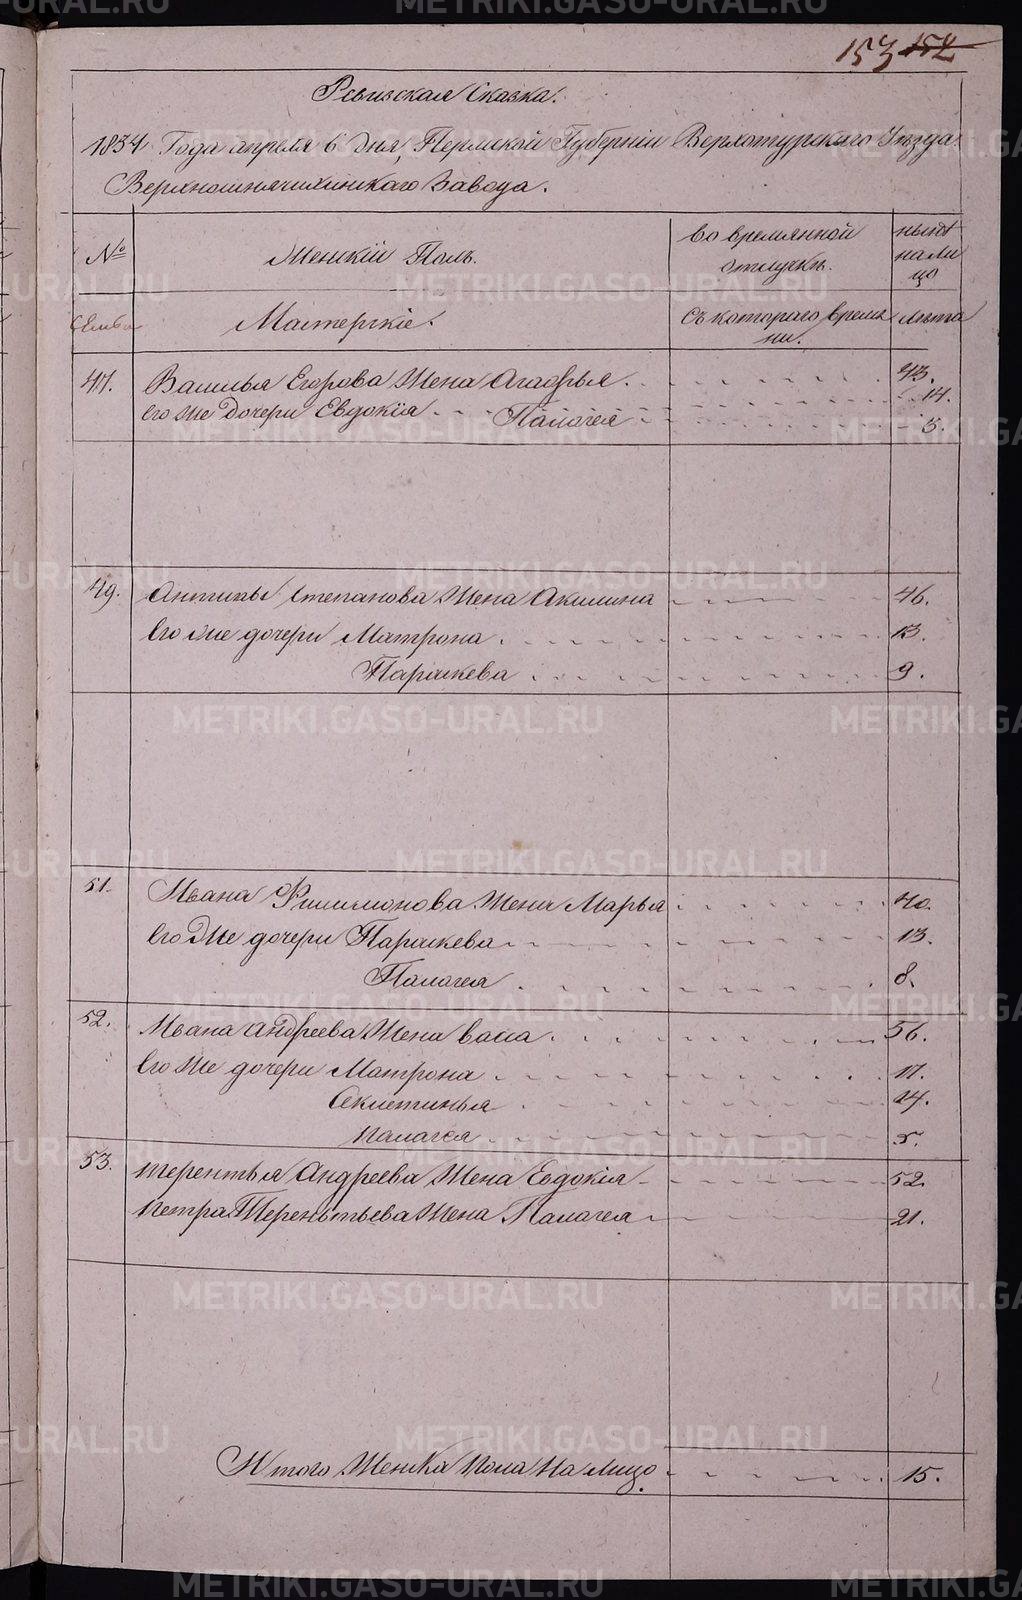 153 152
Ревизская Сказка.
1834 Года апреля 6 дня, Пермской Губернiи Верхотурскаго Уѣзда
Верхносинячихинскаго Завода.
№ Женскiй Полъ. во времянной отлучкѣ. нынѣ на лицо
Семьи Мастерскiе. Съ котораго времяни. Лѣта
47. Василья Егорова Жена Агафья 43.
Его же дочери Евдокiя 14.
Палагея 5.
49. Антипы Степанова Жена Акилина 46.
Его же дочери Матрона 13.
Параскева 9.
51. Ивана Филимонова Жена Марья 40.
Его же дочери Параскева 13.
Палагея 8.
52. Ивана Андреева Жена Васа 56.
Его же дочери Матрона 17.
Секлетинья 14.
Палагея 5.
53. Терентья Андреева Жена Евдокiя 52.
Петра Терентьева Жена Палагея 21.
Итого Женска пола На лицо 15.
METRIKI.GASO-URAL.RU